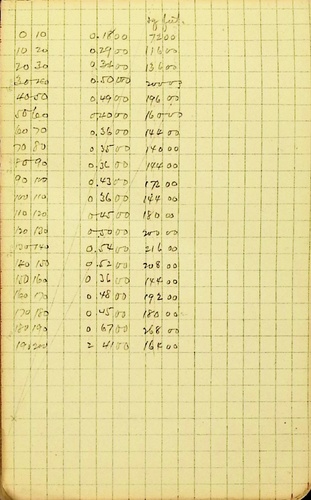 sq. ft.
0 10 0.1800 7200
10 20 0.2900 11600
20 30 0.3400 13600
30 40 0.5000 20000
40 50 0.4900 19600
50 60 0.4000 16000
60 70 0.3600 14400
70 80 0.3500 14000
80 90 0.3600 14400
90 100 0.4300 17200
100 110 0.3600 14400
110 120 0.4500 18000
120 130 0.5000 20000
130 140 0.5400 21600
140 150 0.5200 20800
150 160 0.3600 14400
160 170 0.4800 19200
170 180 0.4500 18000
180 190 0.6700 26800
190 200 2 4100 16400